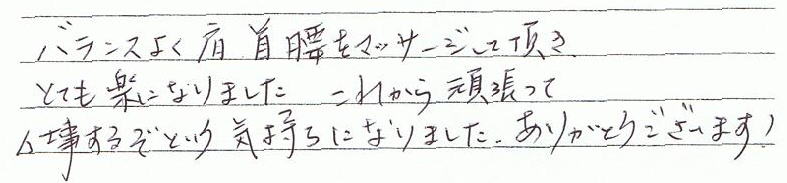 バランスよく肩 首 腰をマッサージして頂き
とても楽になりました これから頑張って
仕事するぞという気持ちになりました。ありがとうございます!